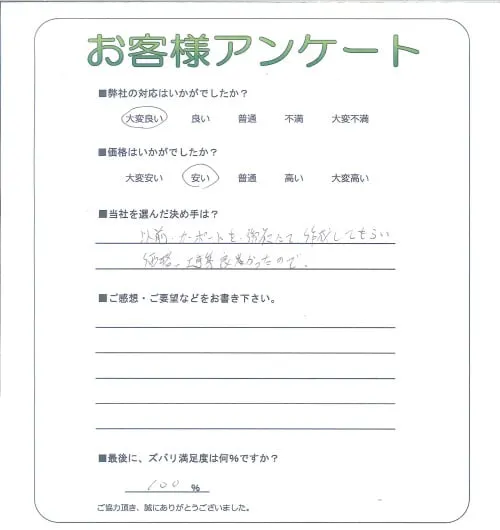 お客様アンケート
■弊社の対応はいかがでしたか？
大変良い 良い 普通 不満 大変不満
■価格はいかがでしたか？
大変安い 安い 普通 高い 大変高い
■当社を選んだ決め手は？
以前、カーポートを 作成してもらい
価格、工事等良かったので。
■ご感想・ご要望などをお書き下さい。
■最後に、ズバリ満足度は何％ですか？
100 %
ご協力頂き、誠にありがとうございました。